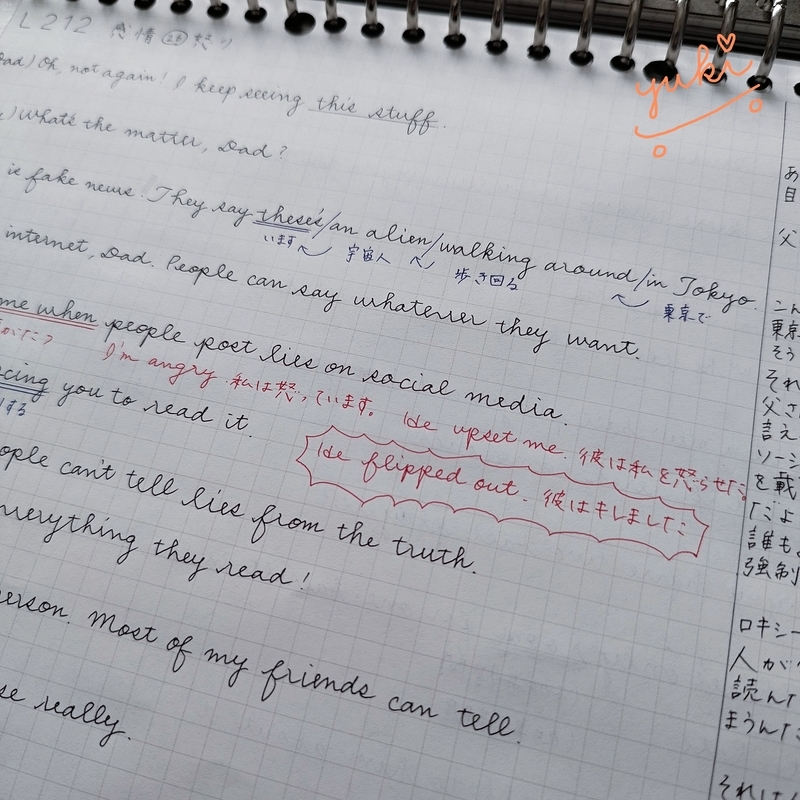 L212 感情㉘怒り
yuki
Dad) Oh, not again! I keep seeing this stuff.
) What's the matter, Dad?
is fake news. They say these's/an alien/walking around/in Tokyo.
います 宇宙人 歩き回る 東京で
internet, Dad. People can say whatever they want.
me when people post lies on social media.
I'm angry. 私は怒っています。 He upset me. 彼は私を怒らせた。
cing you to read it.
する
He flipped out. 彼はキレました
ople can't tell lies from the truth.
everything they read!
erson. Most of my friends can tell.
se really.
あ
目
父
こん
東京
そう
それ
父さ
言え
ソーシ
を載
たよ
誰も
強制
ロキシー
人が
読んた
まうんた
それは